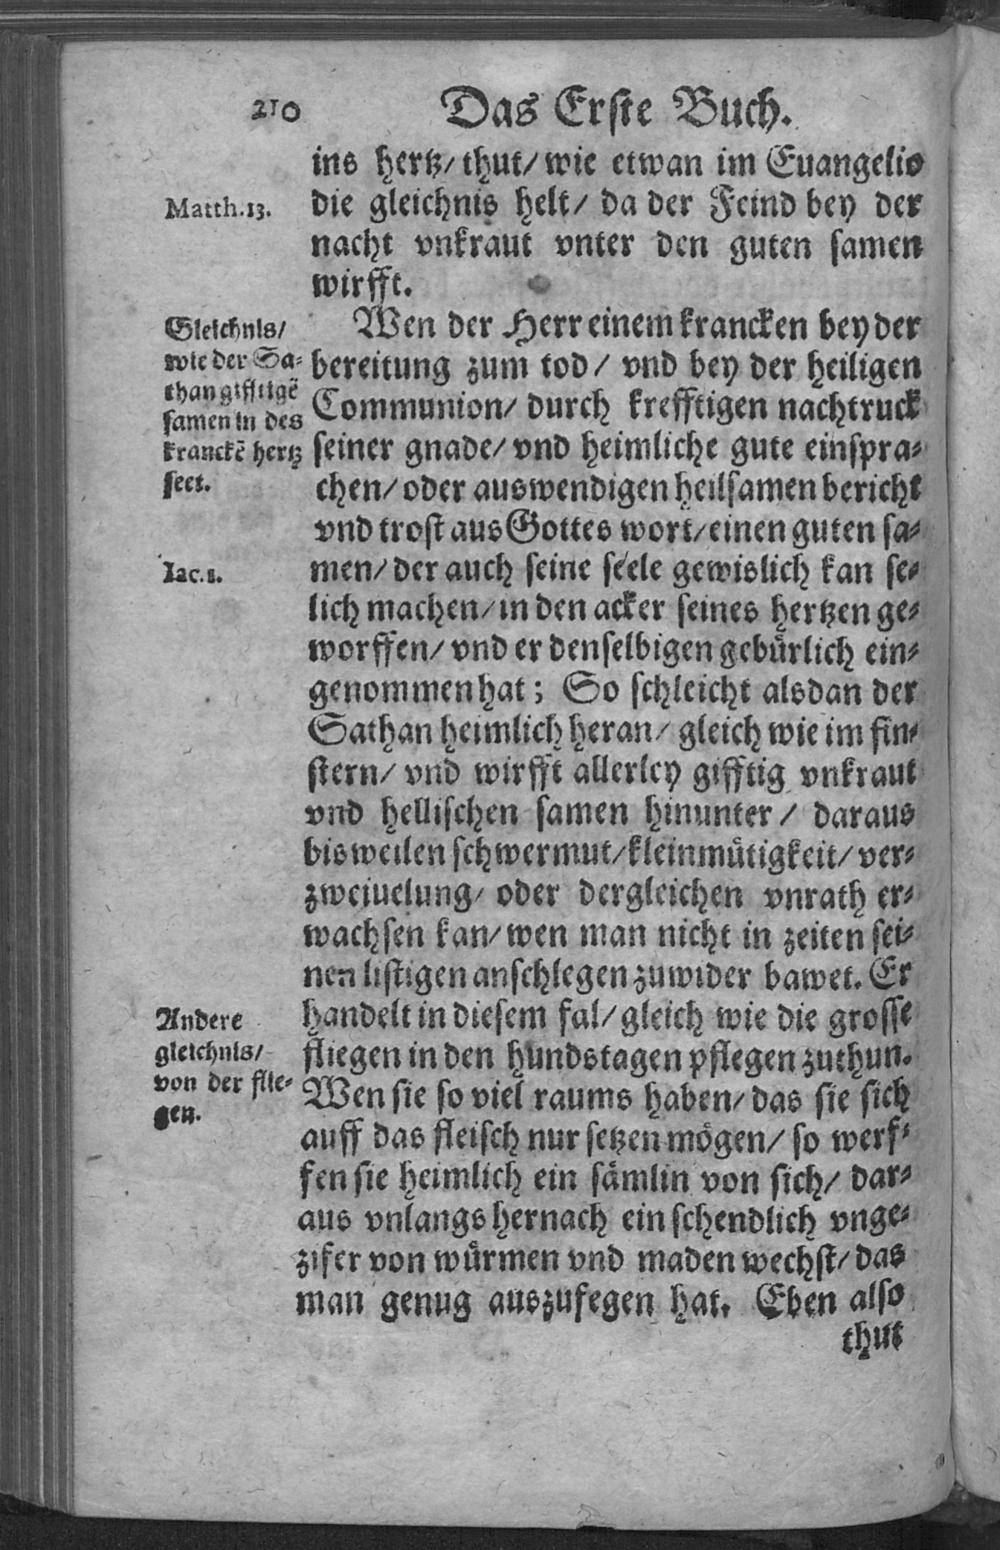 210 Das Erste Buch.
ins hertz/ thut/ wie etwan im Euangelio
Matth.13.
die gleichnis helt/ da der Feind bey der
nacht vnkraut vnter den guten samen
wirfft.
Gleichnis/
wie der Sa⸗
than gifftigẽ
samen in des
kranckẽ hertz
seet.
Wen der Herr einem krancken bey der
bereitung zum tod/ vnd bey der heiligen
Communion/ durch krefftigen nachtruck
seiner gnade/ vnd heimliche gute einspra⸗
chen/ oder auswendigen heilsamen bericht
vnd trost aus Gottes wort/ einen guten sa⸗
Iac.1.
men/ der auch seine seele gewislich kan se⸗
lich machen/ in den acker seines hertzen ge⸗
worffen/ vnd er denselbigen gebürlich ein⸗
genommen hat; So schleicht alsdan der
Sathan heimlich heran/ gleich wie im fin⸗
stern/ vnd wirfft allerley gifftig vnkraut
vnd hellischen samen hinunter/ daraus
bisweilen schwermut/ kleinmütigkeit/ ver⸗
zweiuelung/ oder dergleichen vnrath er⸗
wachsen kan/ wen man nicht in zeiten sei⸗
nen listigen anschlegen zuwider bawet. Er
Andere
gleichnis/
von der flie⸗
gen.
handelt in diesem fal/ gleich wie die grosse
fliegen in den hundstagen pflegen zuthun.
Wen sie so viel raums haben/ das sie sich
auff das fleisch nur setzen mögen/ so werf⸗
fen sie heimlich ein sämlin von sich/ dar⸗
aus vnlangs hernach ein schendlich vnge⸗
zifer von würmen vnd maden wechst/ das
man genug auszufegen hat. Eben also
thut